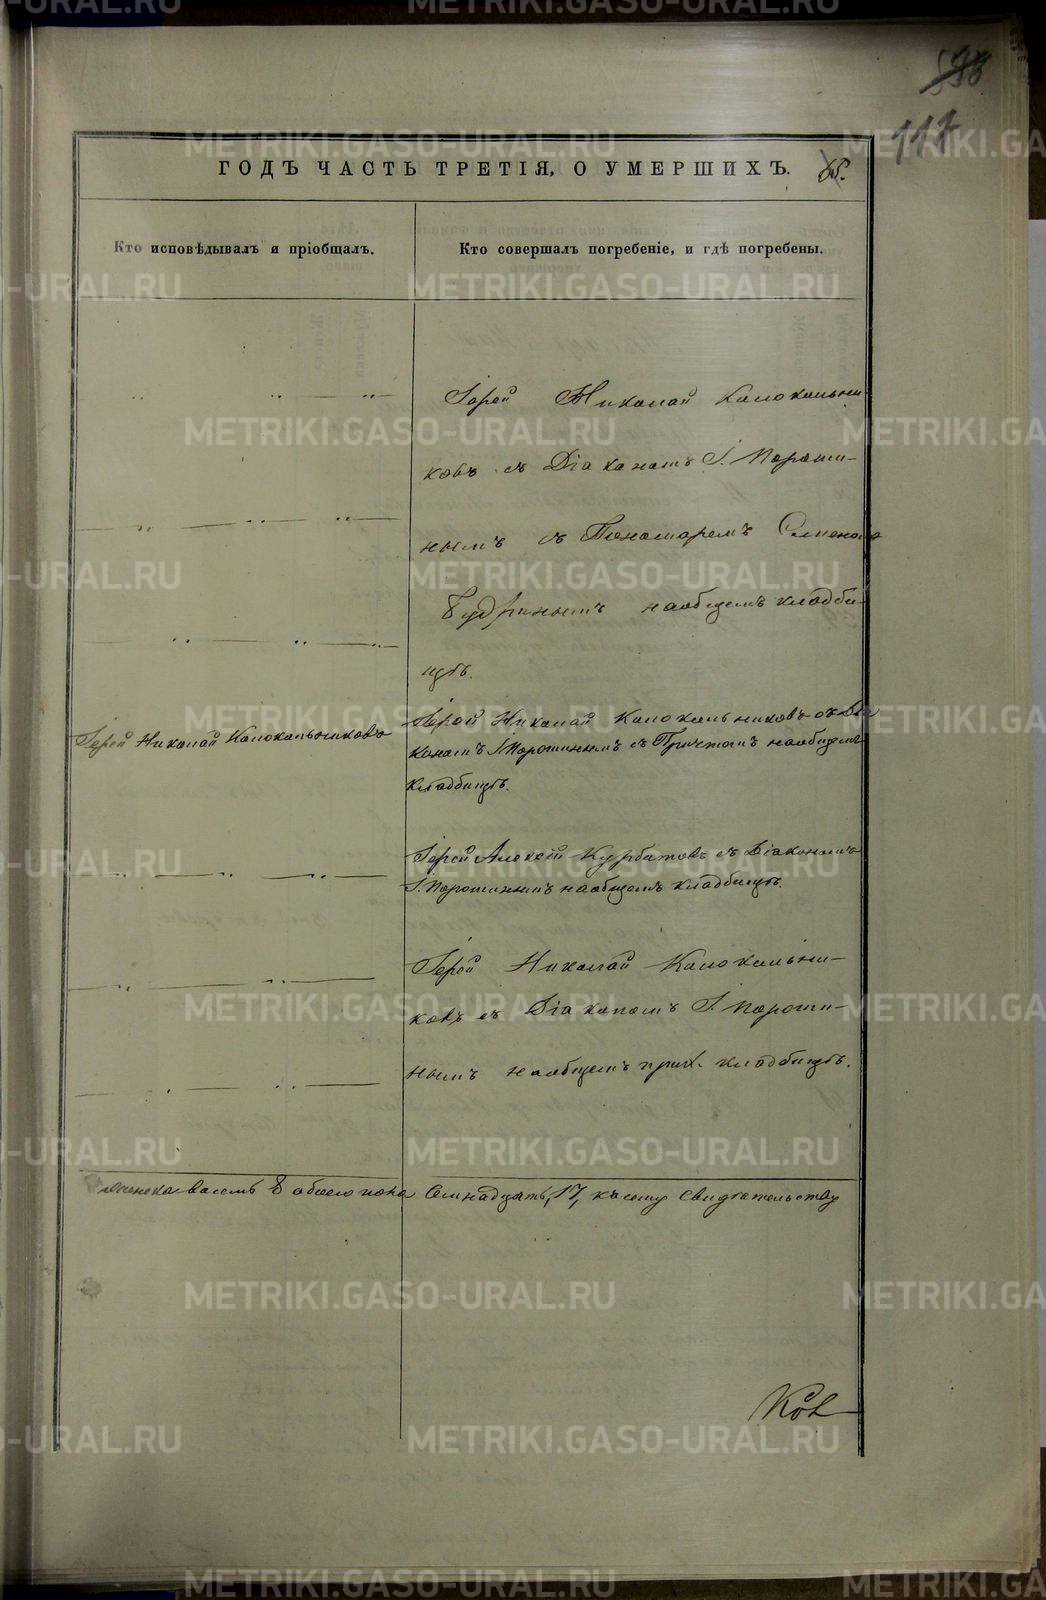 117
ГОДЪ ЧАСТЬ ТРЕТІЯ, О УМЕРШИХЪ.
65.
Кто исповѣдывалъ и пріобщалъ.
Кто совершалъ погребеніе, и гдѣ погребены.
Іерей Николай Калокольни-
ковъ съ Діакономъ І. Пороши-
нымъ съ Пономаремъ Семеномъ
Будринымъ наобщемъ кладби-
щѣ.
Іерей Николай Калокольниковъ
Іерей Николай Калокольниковъ съ Діа
кономъ І. Порошинымъ съ Причтомъ наобщемъ
кладбищѣ.
Іерей Алексѣй Курбатовъ съ Діакономъ
І. Порошинымъ наобщемъ кладбищѣ.
Іерей Николай Калокольни-
ковъ съ Діакономъ І. Пороши-
нымъ наобщемъ прих. кладбищѣ.
женска восемь 8 обоего пола Семнадцать, 17, къ сему свидѣтельству
Ков
METRIKI.GASO-URAL.RU